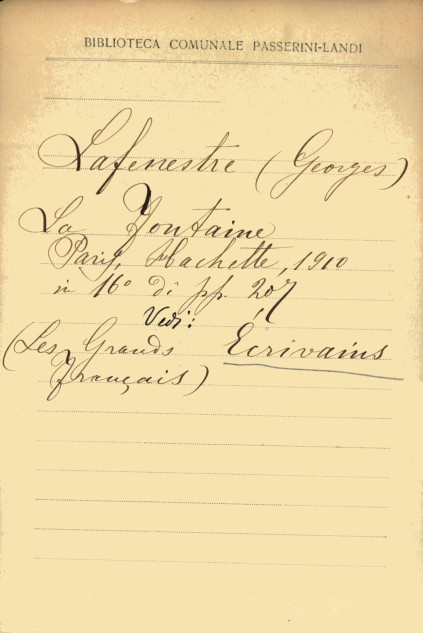 BIBLIOTECA COMUNALE PASSERINI-LANDI
Lafenestre (Georges)
La Fontaine
Paris, Hachette, 1910
in 16° di pp. 207
Vedi:
(Les Grands Écrivains
français)